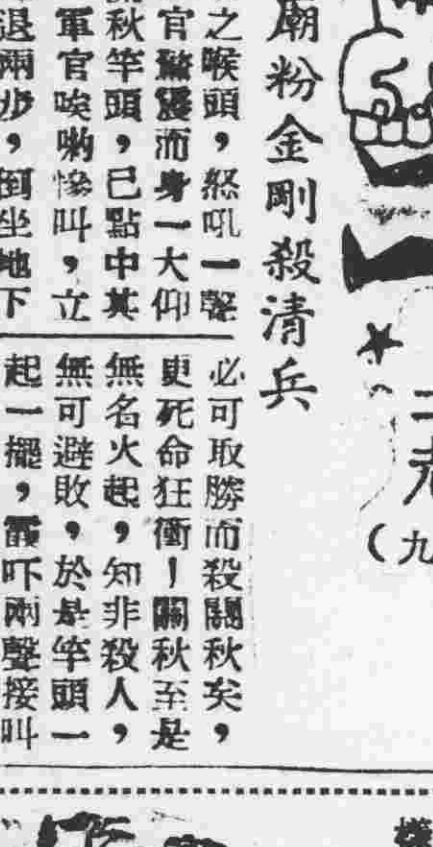 二
（九
廟粉金剛殺清兵
之喉頭，怒吼一聲
官驚震而身一大仰
秋竿頭，已點中其
軍官唉喲慘叫，立
退兩步，倒坐地下
必可取勝而殺關秋矣，
更死命狂衝！關秋至是
無名火起，知非殺人，
無可避敗，於是竿頭一
起一擺，霞吓兩聲接叫